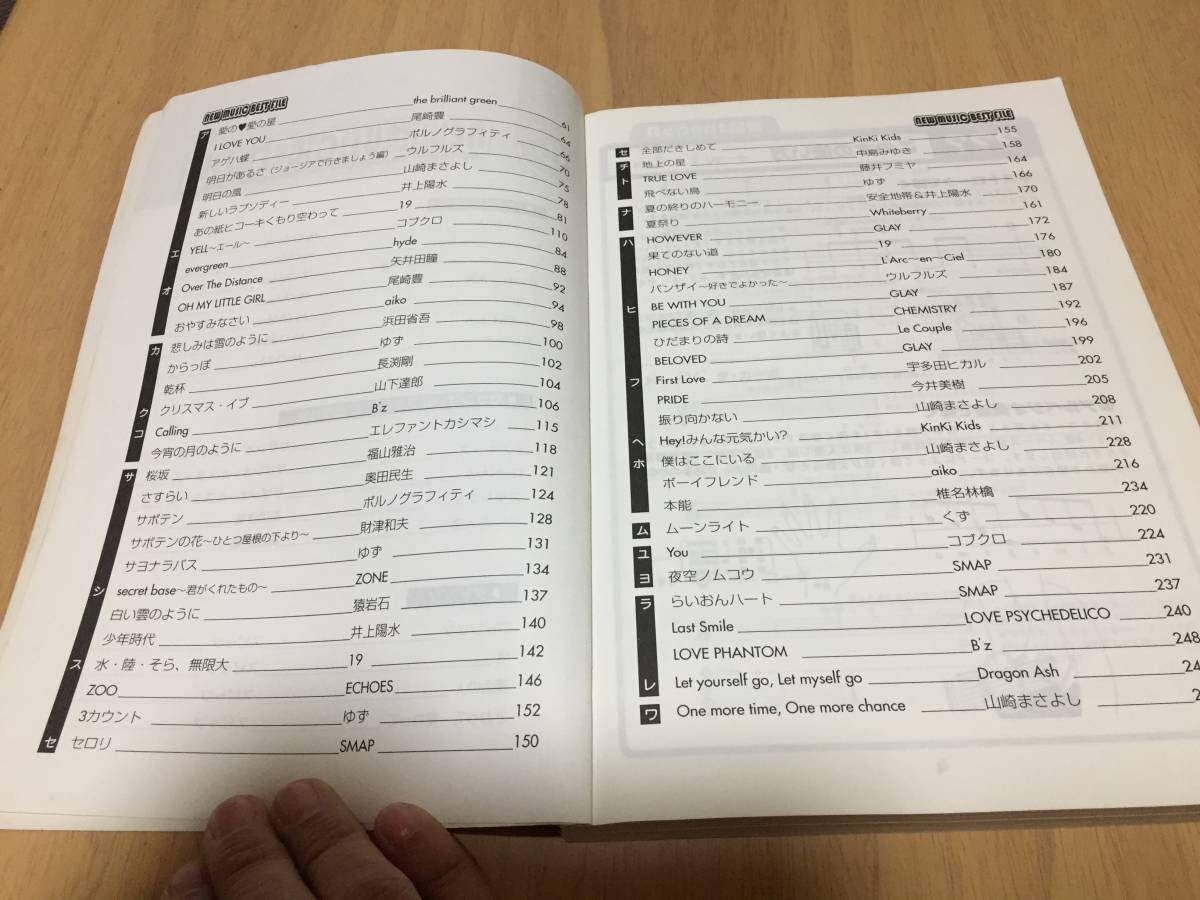 NEW MUSIC BEST FILE
ア 愛の♥愛の星 the brilliant green 61
I LOVE YOU 尾崎豊 64
アゲハ蝶 ポルノグラフィティ 66
明日があるさ（ジョージアで行きましょう編） ウルフルズ 70
明日の風 山崎まさよし 75
新しいラプソディー 井上陽水 78
あの紙ヒコーキくもり空わって 19 81
エ YELL〜エール〜 コブクロ 110
evergreen hyde 84
オ Over The Distance 矢井田瞳 88
OH MY LITTLE GIRL 尾崎豊 92
おやすみなさい aiko 94
カ 悲しみは雪のように 浜田省吾 98
からっぽ ゆず 100
乾杯 長渕剛 102
ク クリスマス・イブ 山下達郎 104
コ Calling B'z 106
今宵の月のように エレファントカシマシ 115
サ 桜坂 福山雅治 118
さすらい 奥田民生 121
サボテン ポルノグラフィティ 124
サボテンの花〜ひとつ屋根の下より〜 財津和夫 128
サヨナラバス ゆず 131
シ secret base〜君がくれたもの〜 ZONE 134
白い雲のように 猿岩石 137
少年時代 井上陽水 140
ス 水・陸・そら、無限大 19 142
ZOO ECHOES 146
3カウント ゆず 152
セ セロリ SMAP 150
NEW MUSIC BEST FILE
セ 全部だきしめて KinKi Kids 155
チ 地上の星 中島みゆき 158
ト TRUE LOVE 藤井フミヤ 164
飛べない鳥 ゆず 166
ナ 夏の終りのハーモニー 安全地帯＆井上陽水 170
夏祭り Whiteberry 161
ハ HOWEVER GLAY 172
果てのない道 19 176
HONEY L'Arc〜en〜Ciel 180
バンザイ〜好きでよかった〜 ウルフルズ 184
ヒ BE WITH YOU GLAY 187
PIECES OF A DREAM CHEMISTRY 192
ひだまりの詩 Le Couple 196
BELOVED GLAY 199
フ First Love 宇多田ヒカル 202
PRIDE 今井美樹 205
振り向かない 山崎まさよし 208
ヘ Hey!みんな元気かい? KinKi Kids 211
ホ 僕はここにいる 山崎まさよし 228
ボーイフレンド aiko 216
本能 椎名林檎 234
ム ムーンライト くず 220
ユ You コブクロ 224
ヨ 夜空ノムコウ SMAP 231
ラ らいおんハート SMAP 237
Last Smile LOVE PSYCHEDELICO 240
LOVE PHANTOM B'z 248
レ Let yourself go, Let myself go Dragon Ash 24
ワ One more time, One more chance 山崎まさよし 2